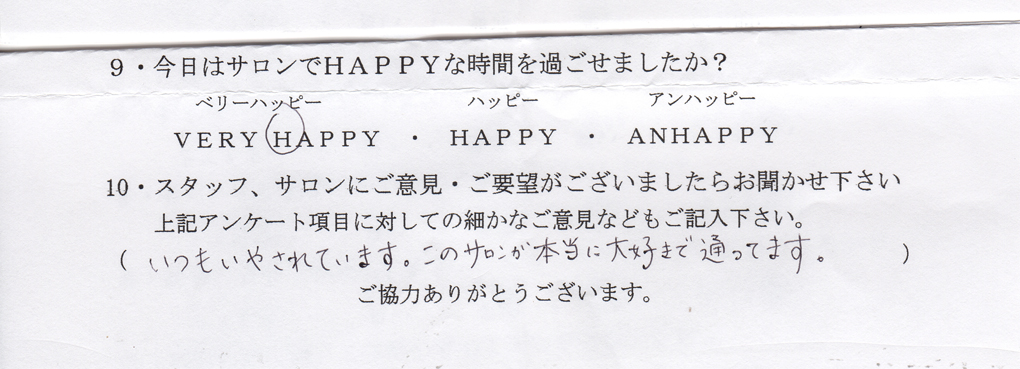 9・今日はサロンでHAPPYな時間を過ごせましたか?
ベリーハッピー ハッピー アンハッピー
VERY HAPPY ・ HAPPY ・ ANHAPPY
10・スタッフ、サロンにご意見・ご要望がございましたらお聞かせ下さい
上記アンケート項目に対しての細かなご意見などもご記入下さい。
(いつもいやされています。このサロンが本当に大好きで通ってます。)
ご協力ありがとうございます。